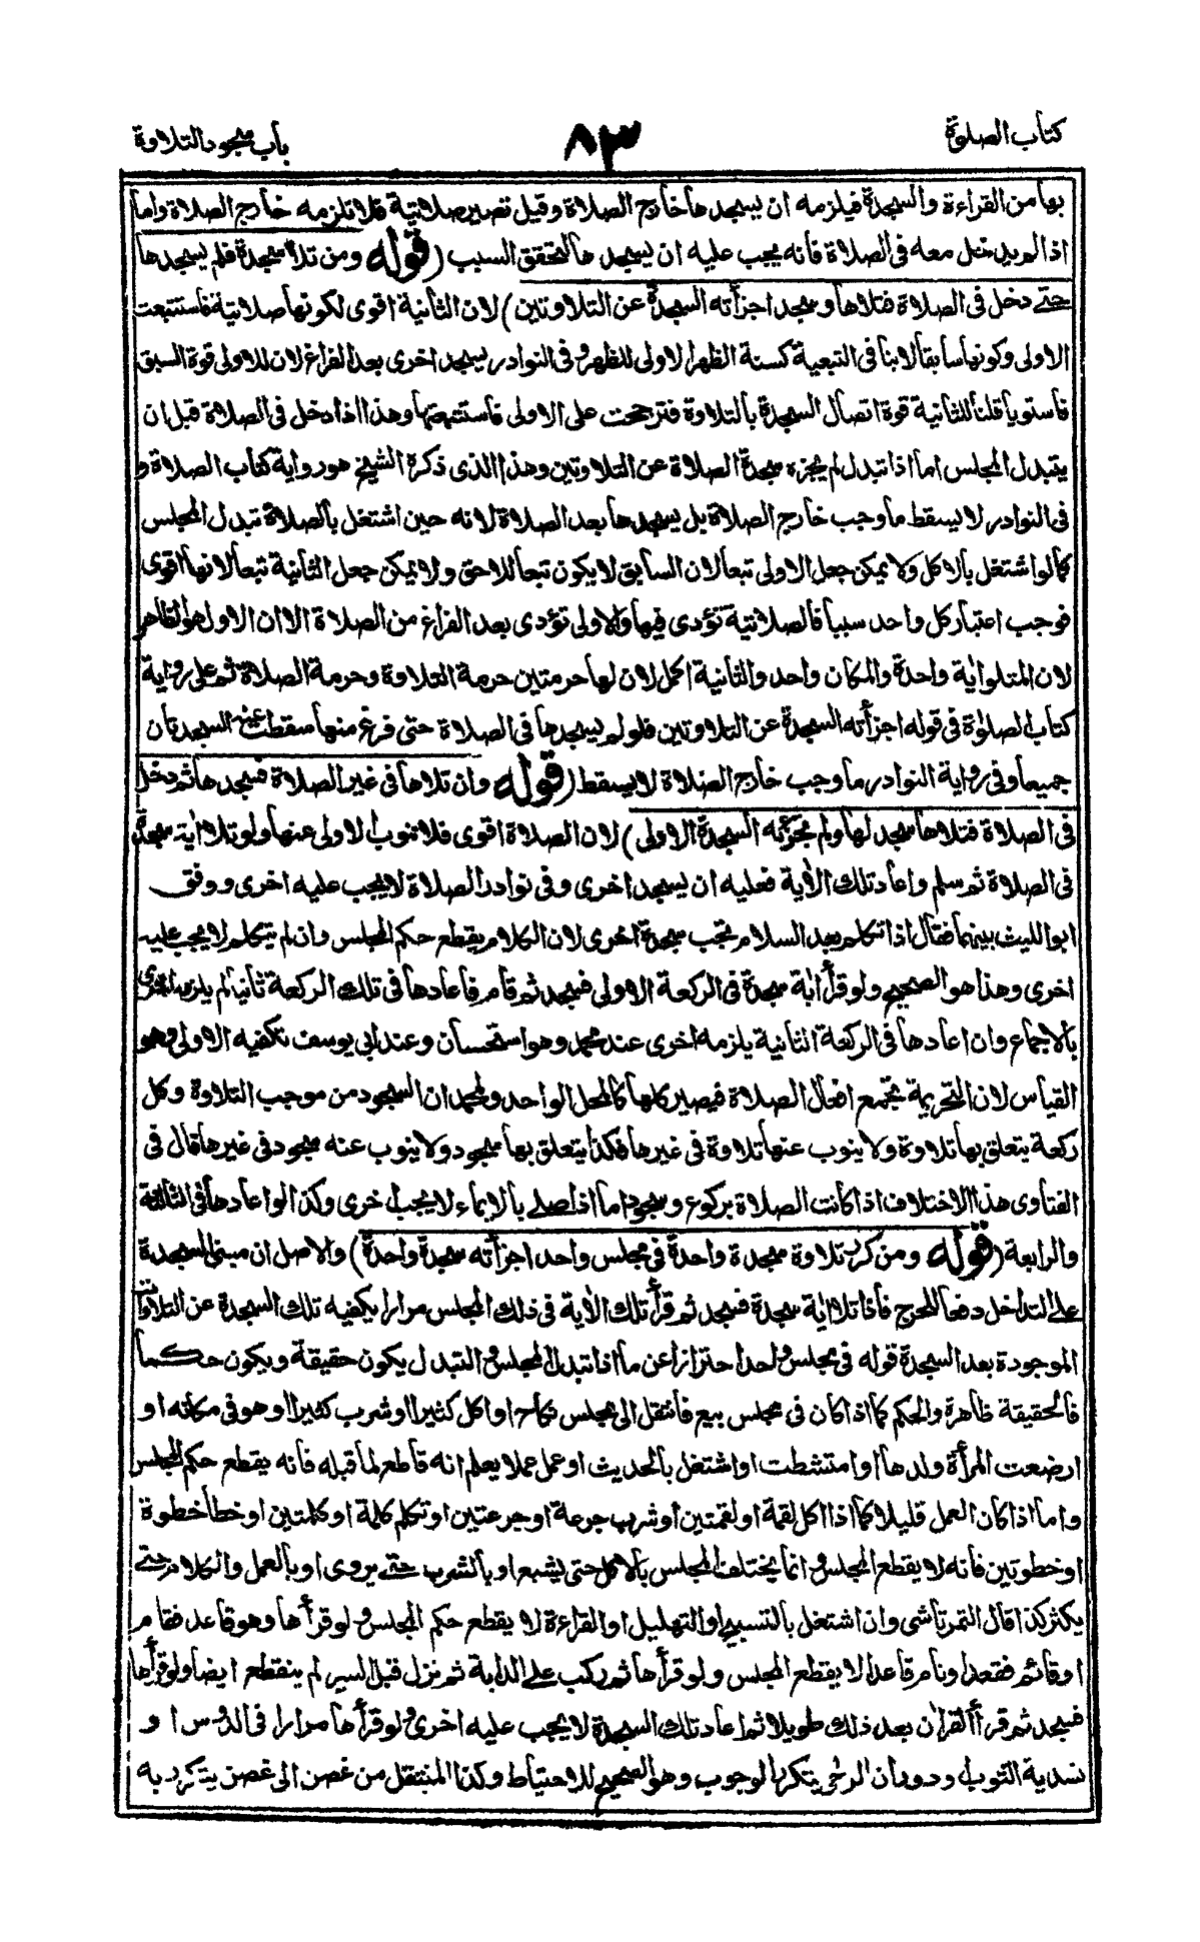 كتاب الصلوة
٨٣
باب سجود التلاوة
بها من القراءة والسجدة فيلزمه ان يسجدها خارج الصلاة وقيل تصير صلاتية فلا تلزمه خارج الصلاة واما
اذا لم يدخل معه فى الصلاة فانه يجب عليه ان يسجدها لتحقق السبب (قوله ومن تلا سجدة فلم يسجدها
حتى دخل فى الصلاة فتلاها وسجد اجزأته السجدة عن التلاوتين) لان الثانية اقوى لكونها صلاتية فاستتبعت
الاولى وكونها سابقا لا ينافى التبعية كسنة الظهر الاولى للظهر وفى النوادر يسجد اخرى بعد الفراغ لان للاولى قوة السبق
فاستويا قلنا للثانية قوة اتصال السجدة بالتلاوة فترجحت على الاولى فاستتبعتها وهذا اذا دخل فى الصلاة قبل ان
يتبدل المجلس اما اذا تبدل لم يجزه سجدة الصلاة عن التلاوتين وهذا الذى ذكره الشيخ هو رواية كتاب الصلاة و
فى النوادر لا يسقط ما وجب خارج الصلاة بل يسجدها بعد الصلاة لانه حين اشتغل بالصلاة تبدل المجلس
كما لو اشتغل بالاكل ولا يمكن جعل الاولى تبعا لان السابق لا يكون تبعا للاحق ولا يمكن جعل الثانية تبعا لانها اقوى
فوجب اعتبار كل واحد سببا فالصلاتية تؤدى فيها والاولى تؤدى بعد الفراغ من الصلاة الا ان الاول هو الظاهر
لان المتلو اية واحدة والمكان واحد والثانية اكمل لان لها حرمتين حرمة التلاوة وحرمة الصلاة ثم على رواية
كتاب الصلوة فى قوله اجزأته السجدة عن التلاوتين فلو لم يسجدها فى الصلاة حتى فرغ منها سقطت عنه السجدتان
جميعا وفى رواية النوادر ما وجب خارج الصلاة لا يسقط (قوله وان تلاها فى غير الصلاة فسجدها ثم دخل
فى الصلاة فتلاها سجد لها ولم تجزئه السجدة الاولى) لان الصلاة اقوى فلا تنوب الاولى عنها ولو تلا اية سجدة
فى الصلاة ثم سلم واعاد تلك الأية فعليه ان يسجد اخرى وفى نوادر الصلاة لا يجب عليه اخرى ووفق
ابو الليث بينهما فقال اذا تكلم بعد السلام تجب سجدة اخرى لان الكلام يقطع حكم المجلس وان لم يتكلم لا يجب عليه
اخرى وهذا هو الصحيح ولو قرأ اية سجدة فى الركعة الاولى فسجد ثم قام فاعادها فى تلك الركعة ثانيا لم يلزمه اخرى
بالاجماع وان اعادها فى الركعة الثانية يلزمه اخرى عند محمد وهو استحسان وعند ابى يوسف تكفيه الاولى وهو
القياس لان التحريمة تجمع افعال الصلاة فيصير كلها كالمحل الواحد ولمحمد ان السجود من موجب التلاوة وكل
ركعة يتعلق بها تلاوة ولا ينوب عنها تلاوة فى غيرها فكذا يتعلق بها سجود ولا ينوب عنه سجود فى غيرها قال فى
الفتاوى هذا الاختلاف اذا كانت الصلاة بركوع وسجود اما اذا صلى بالايماء لا يجب اخرى وكذا لو اعادها فى الثالثة
والرابعة (قوله ومن كرر تلاوة سجدة واحدة فى مجلس واحد اجزأته سجدة واحدة) والاصل ان مبنى السجدة
على التداخل دفعا للحرج فاذا تلا اية سجدة فسجد ثم قرأ تلك الأية فى ذلك المجلس مرارا يكفيه تلك السجدة عن التلاوات
الموجودة بعد السجدة قوله فى مجلس واحد احترازا عن ما اذا تبدل المجلس والتبدل يكون حقيقة ويكون حكما
فالحقيقة ظاهرة والحكم كما اذا كان فى مجلس بيع فانتقل الى مجلس نكاح او اكل كثيرا او شرب كثيرا وهو فى مكانه او
ارضعت المرأة ولدها او امتشطت او اشتغل بالحديث او عمل عملا يعلم انه قاطع لما قبله فانه يقطع حكم المجلس
واما اذا كان العمل قليلا كما اذا اكل لقمة او لقمتين او شرب جرعة او جرعتين او تكلم كلمة او كلمتين او خطا خطوة
او خطوتين فانه لا يقطع المجلس وانما يختلف المجلس بالاكل حتى يشبع او بالشرب حتى يروى او بالعمل والكلام حتى
يكثر كذا قال التمرتاشى وان اشتغل بالتسبيح او التهليل او القراءة لا يقطع حكم المجلس ولو قرأها وهو قاعد فقام
او قائم فقعد او نام قاعدا لا يقطع المجلس ولو قرأها ثم ركب على الدابة ثم نزل قبل السير لم ينقطع ايضا ولو قرأها
فسجد ثم قرأ القرأن بعد ذلك طويلا ثم اعاد تلك السجدة لا يجب عليه اخرى ولو قرأها مرارا فى الدوس او
تسدية الثوب او دوران الرحى يتكرر الوجوب وهو الصحيح للاحتياط وكذا المنتقل من غصن الى غصن يتكرر به